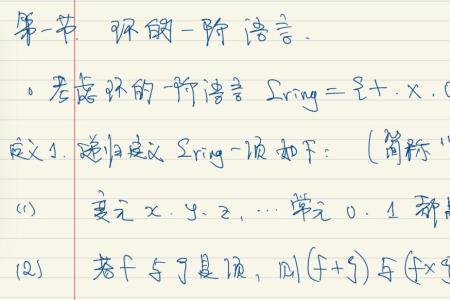 第一节 环的一阶语言.
• 考虑环的一阶语言 Lring = {+. ×. 0
定义1. 递归定义 Lring-项如下: (简称"
(1) 变元 x. y. z, … 常元 0. 1 都
(2) 若 f 与 g 是项, 则 (f+g) 与 (f×g